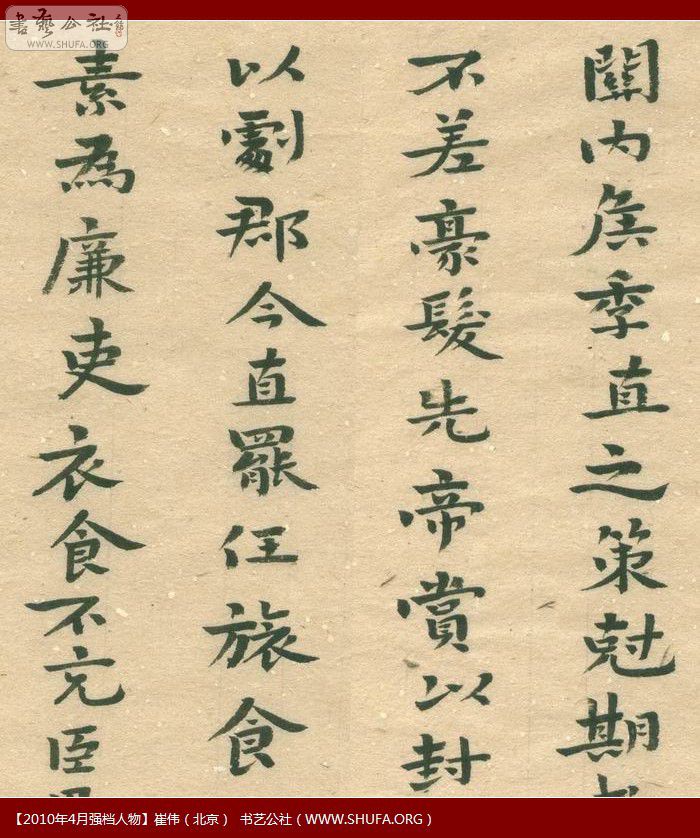 書藝公社
WWW.SHUFA.ORG
關内侯季直之策尅期
不差豪髮先帝賞以封
以劇郡今直罷任旅食
素為廉吏衣食不充臣
【2010年4月强档人物】崔伟（北京） 书艺公社（WWW.SHUFA.ORG）